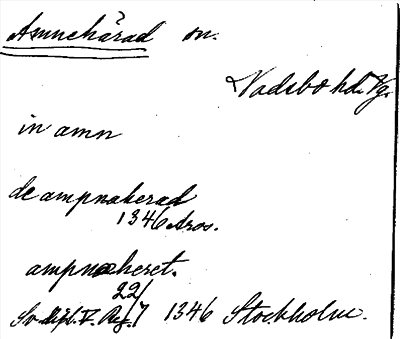 Amnehärad sn.
Vadsbo hd. Vg.
in amn
de ampnaherad
1346 Aros.
ampnæheret.
22/7 1346 Stockholm.
Sv. dipl. V. Reg.